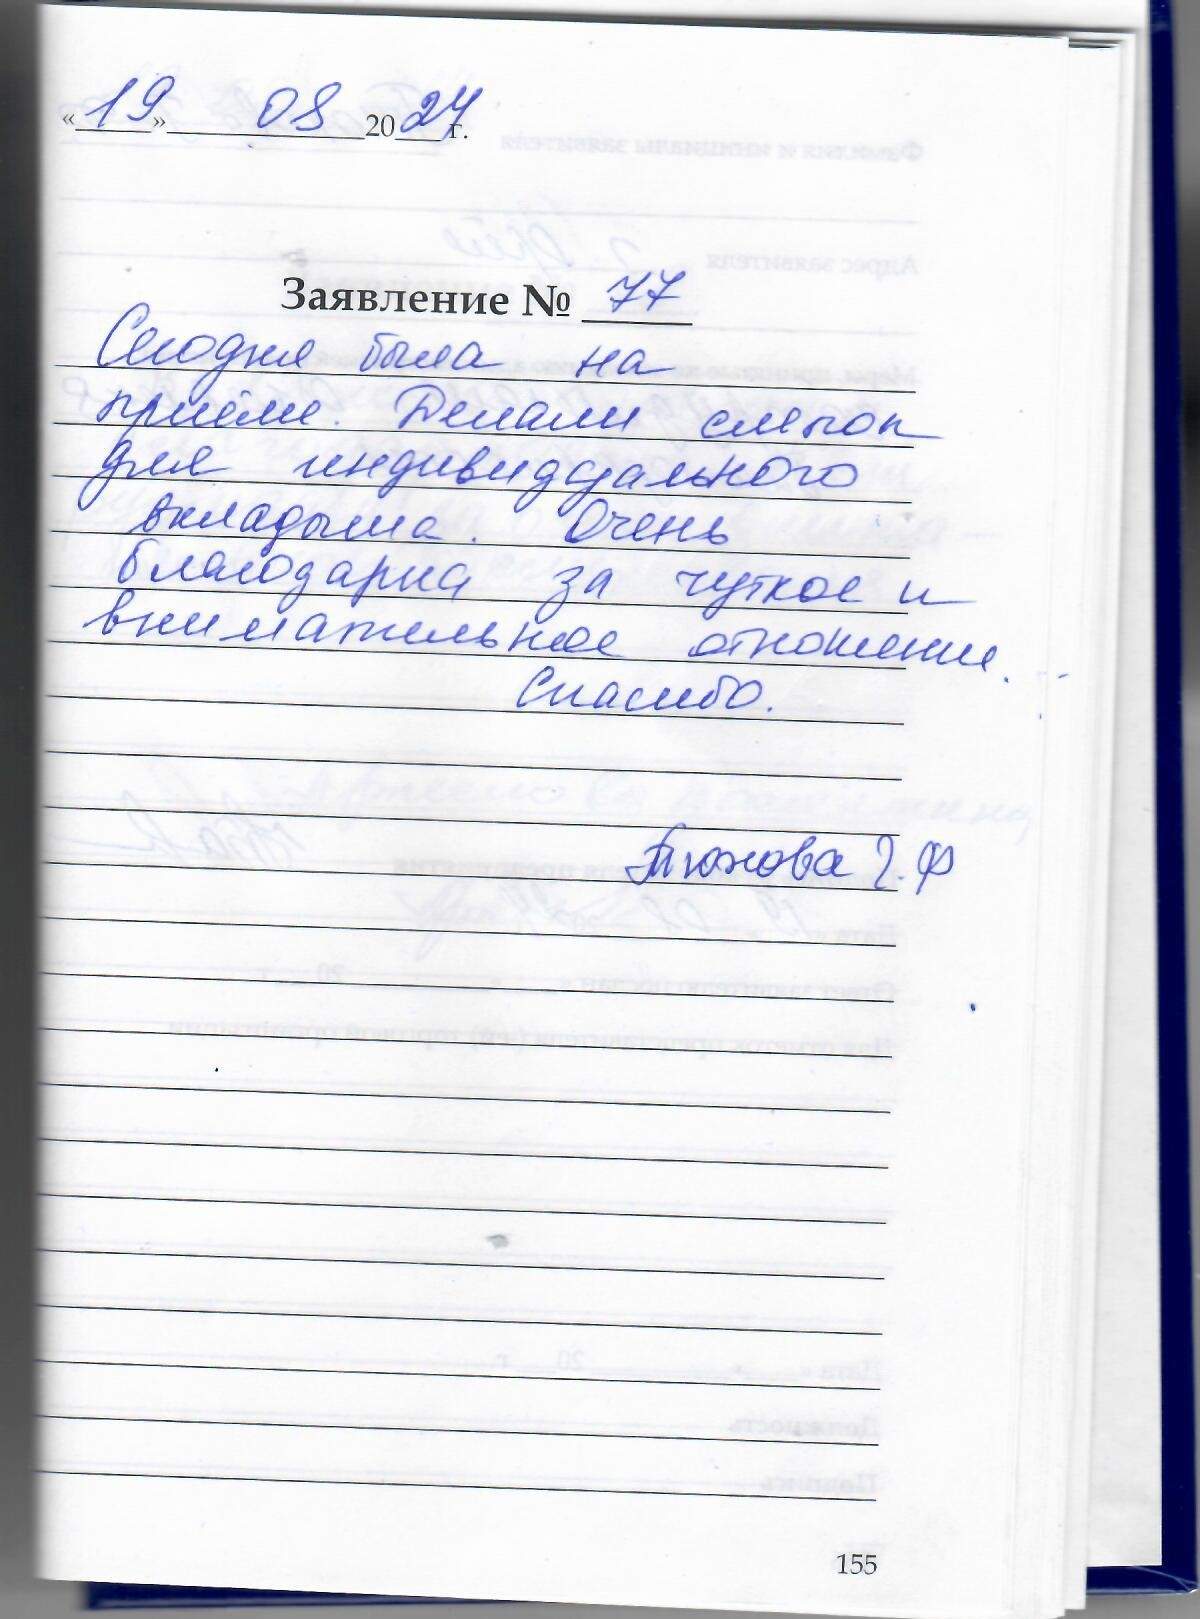 «19» 08 2024 г.
Заявление № 77
Сегодня была на
приёме. Делали слепок
для индивидуального
вкладыша. Очень
благодарна за чуткое и
внимательное отношение.
Спасибо.
Тюнова Г.Ф
155